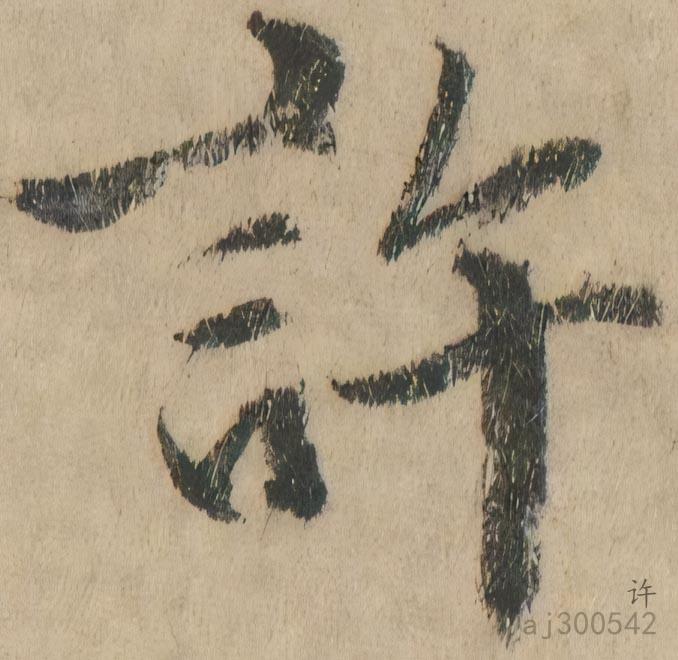 許
许
aj300542